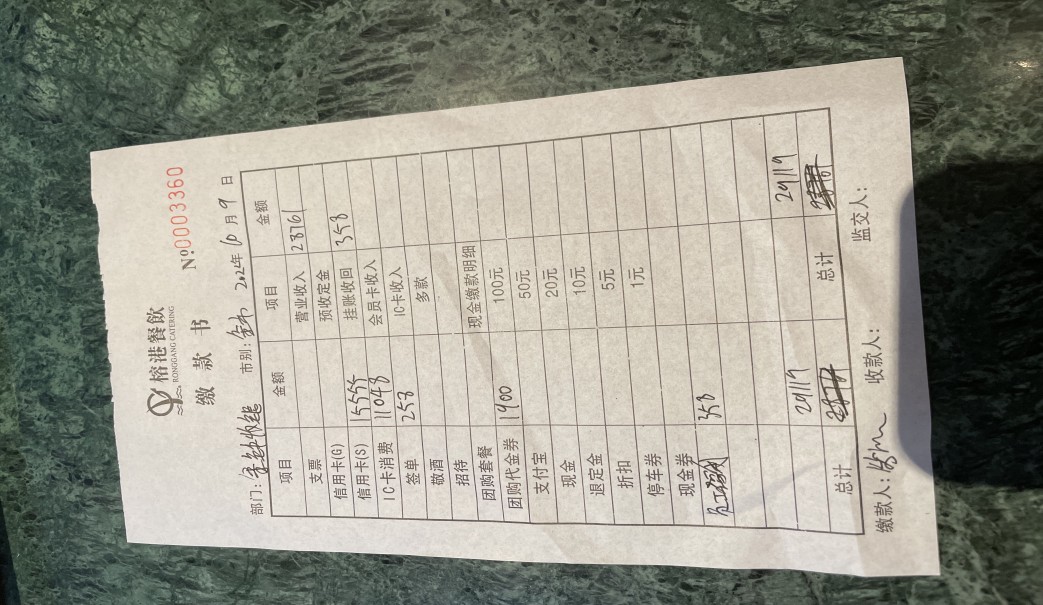 榕港餐饮
RONGGANG CATERING
缴款书
№0003360
部门: 市别:全市 2024年6月9日
项目 金额 项目 金额
支票 营业收入 28761
信用卡(G) 预收定金
信用卡(S) 15555 挂账收回 358
IC卡消费 11048 会员卡收入
签单 258 IC卡收入
敬酒 多款
招待
团购套餐 现金缴款明细
团购代金券 1900 100元
支付宝 50元
现金 20元
退定金 10元
折扣 5元
停车券 1元
现金券
358
29119 29119
总计 总计
缴款人: 收款人: 监交人: